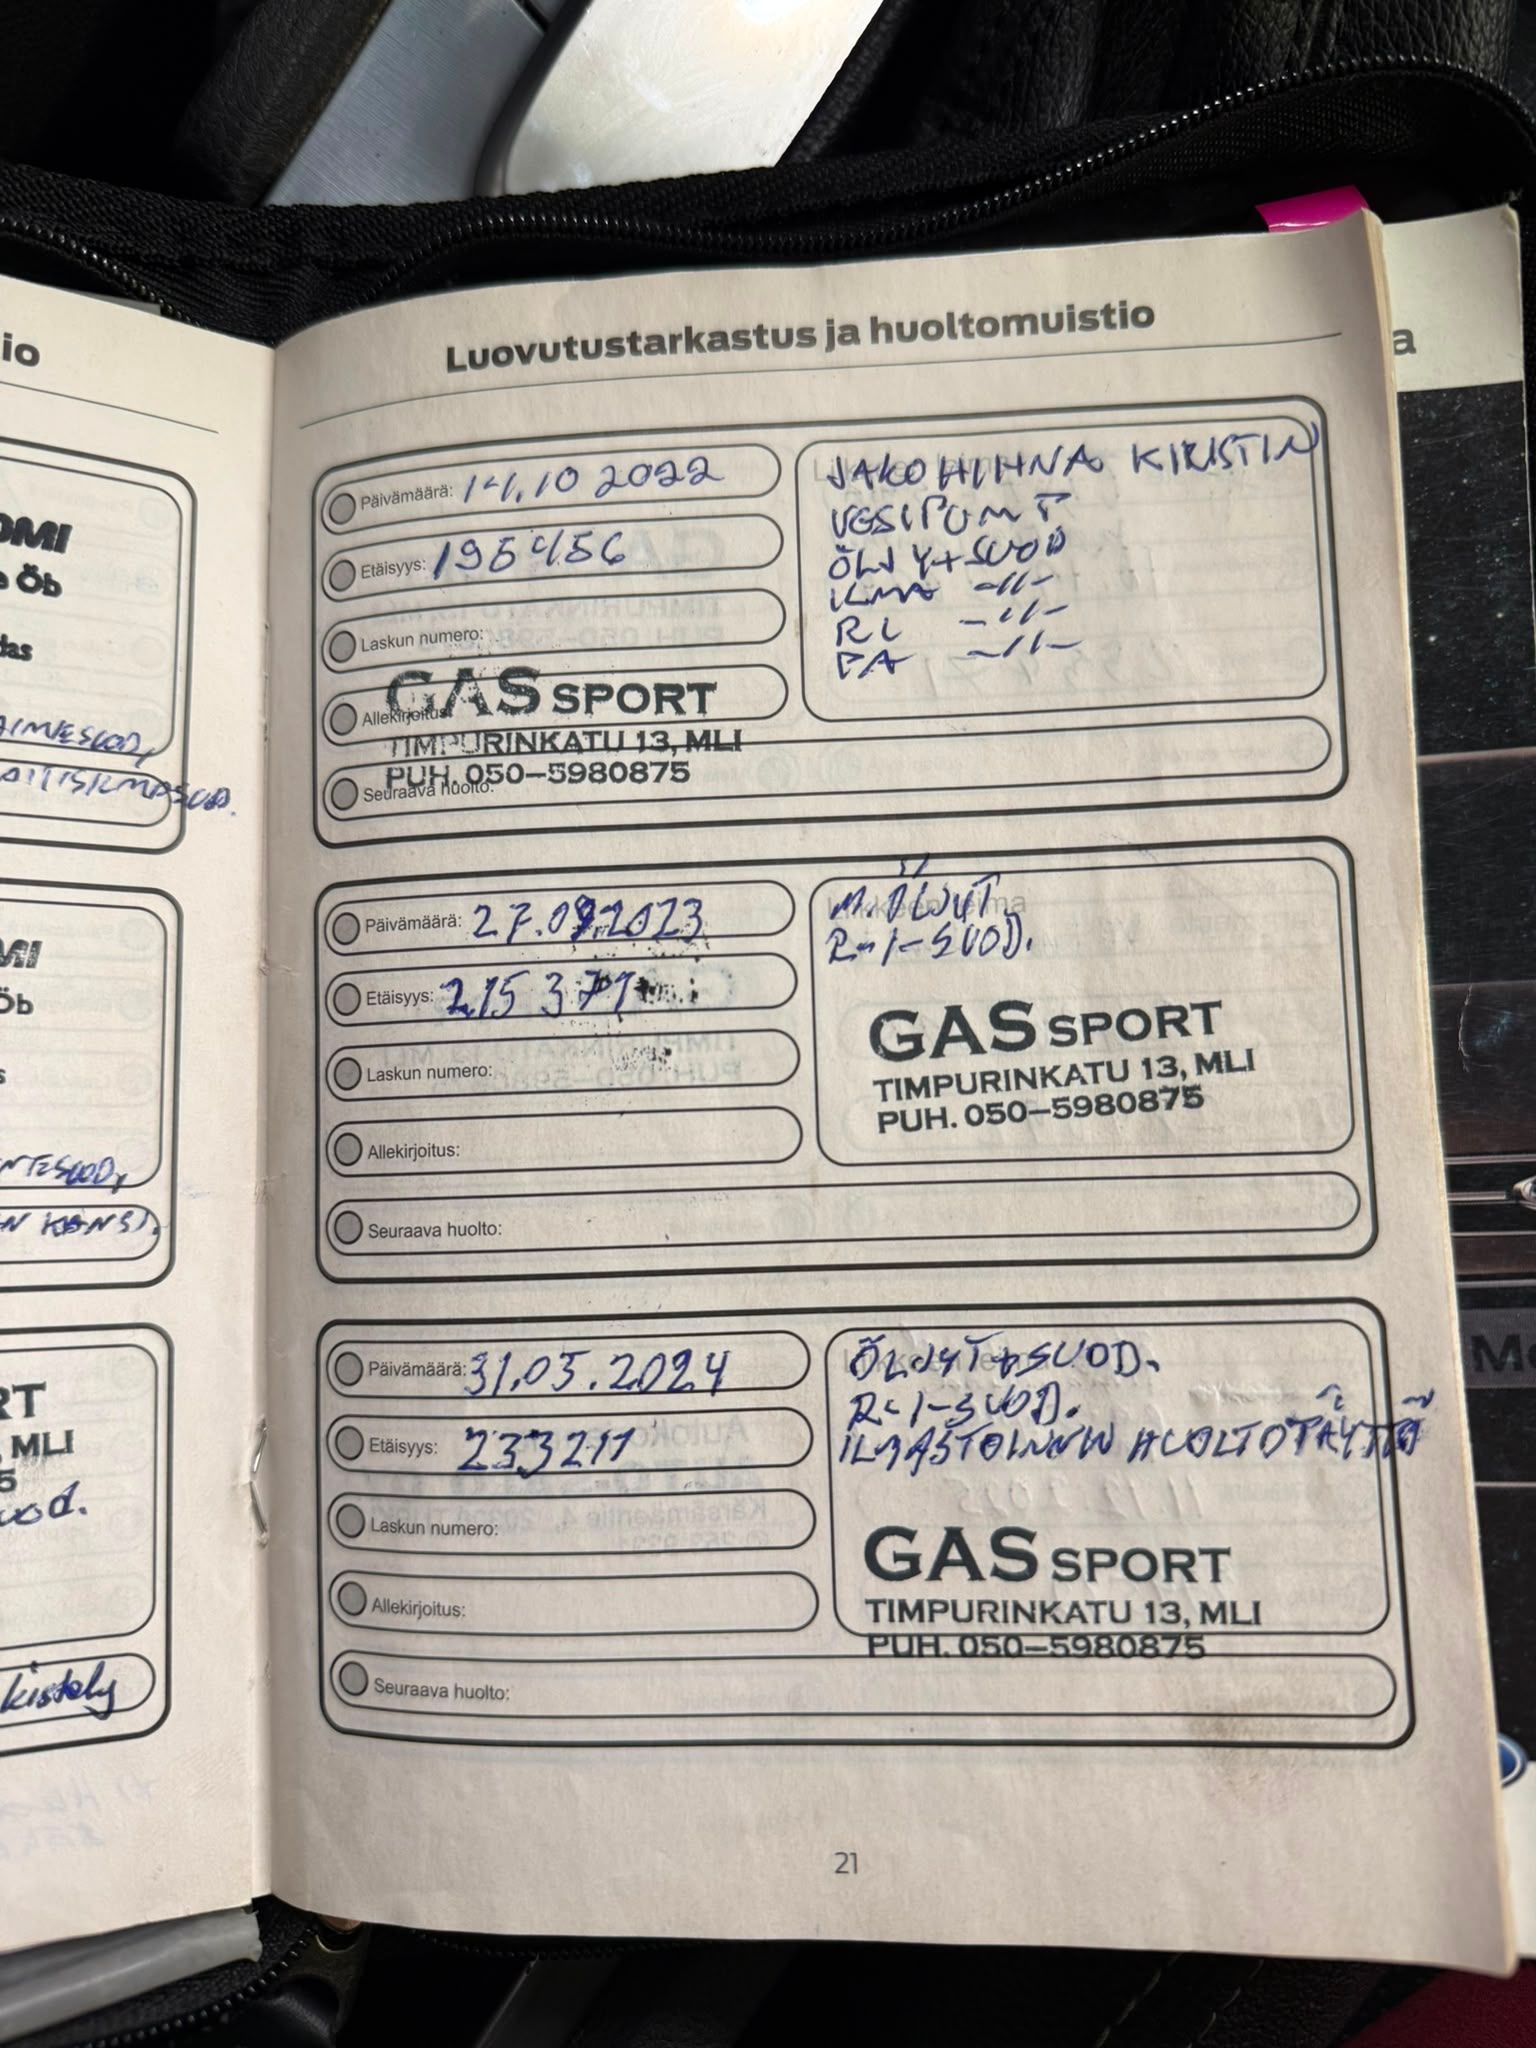 io
OMI
Öb
das
AIMESUOD,
MI
Öb
s
NTESUOD,
N KANSI.
RT
, MLI
5
uod.
kistely
Luovutustarkastus ja huoltomuistio
Päivämäärä: 14.10 2022
Etäisyys: 195456
Laskun numero:
Allekirjoitus:
Seuraava huolto:
GAS SPORT
TIMPURINKATU 13, MLI
PUH. 050-5980875
JAKOHIHNA KIRISTIN
VESIPUMT
ÖLJY+SUOD
ILMA -//-
RI -//-
PA -//-
Päivämäärä: 27.09.2023
Etäisyys: 215371
Laskun numero:
Allekirjoitus:
Seuraava huolto:
M. ÖLJYT.
R-I-SUOD.
GAS SPORT
TIMPURINKATU 13, MLI
PUH. 050-5980875
Päivämäärä: 31.05.2024
Etäisyys: 233211
Laskun numero:
Allekirjoitus:
Seuraava huolto:
ÖLJYT+SUOD.
R-I-SUOD.
ILMASTOINNIN HUOLTOTÄYTTÖ
GAS SPORT
TIMPURINKATU 13, MLI
PUH. 050-5980875
21
a